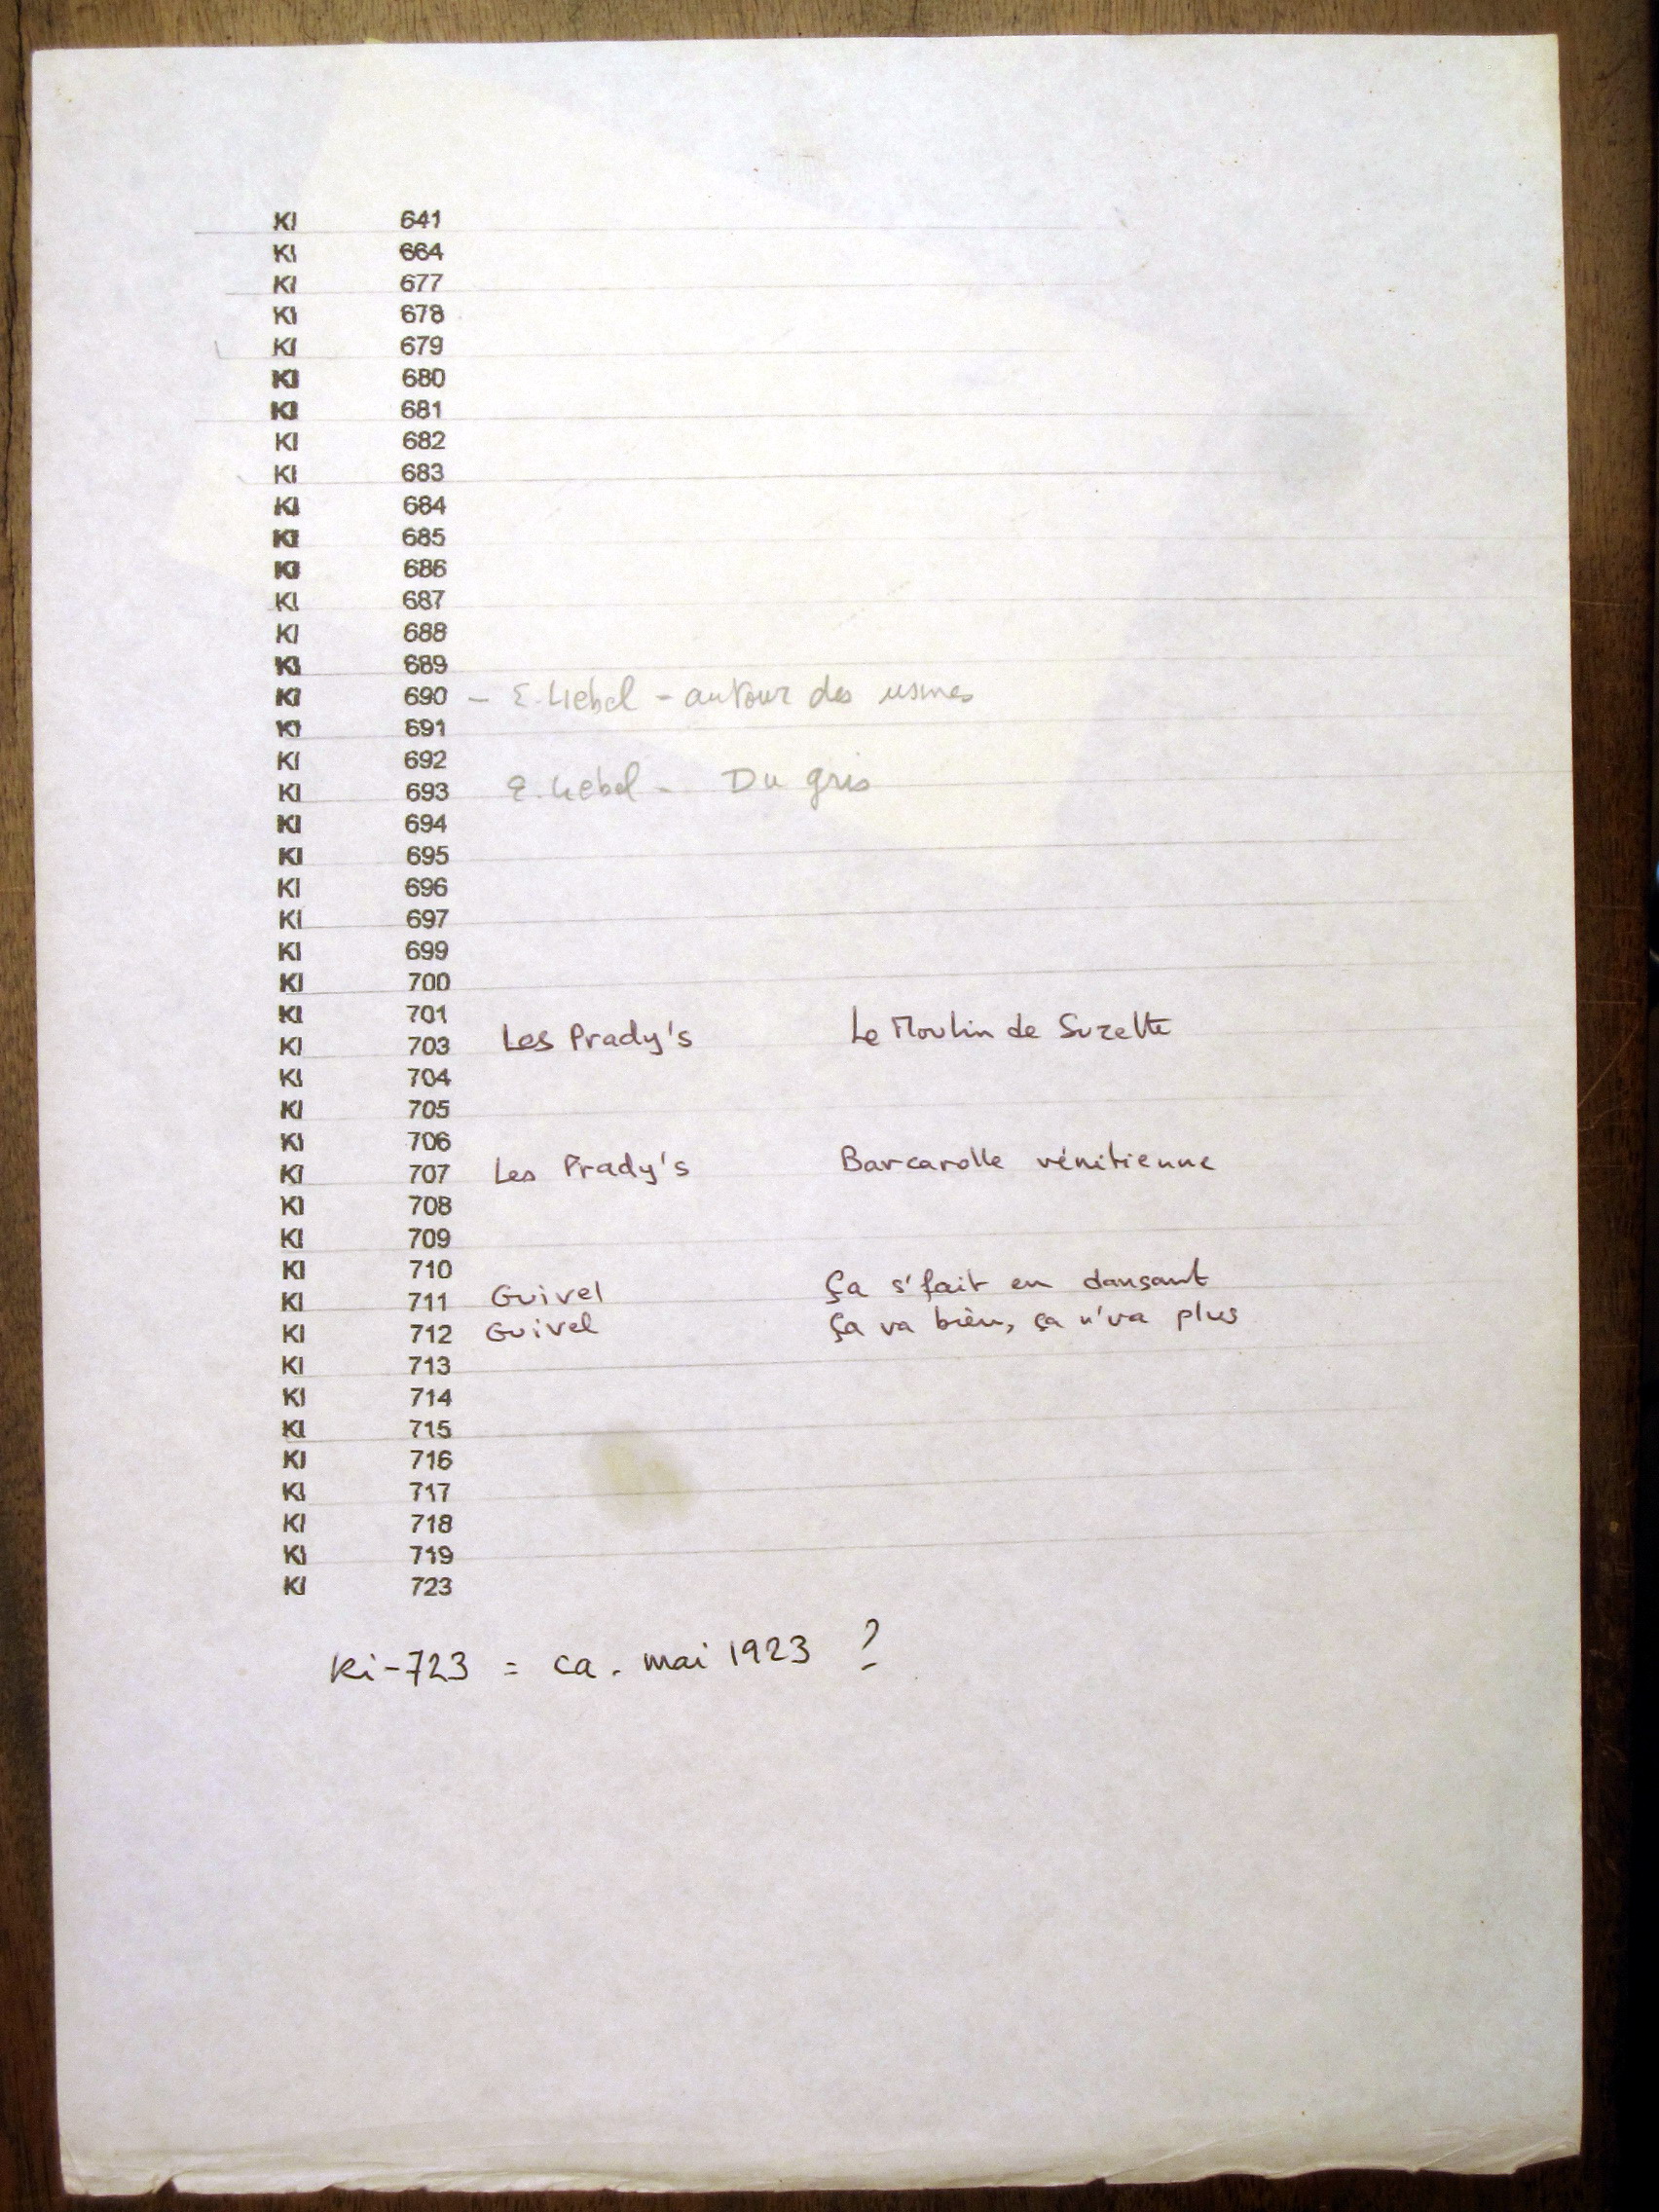 KI 641
KI 664
KI 677
KI 678
KI 679
KI 680
KI 681
KI 682
KI 683
KI 684
KI 685
KI 686
KI 687
KI 688
KI 689
KI 690 – E. Liebel – autour des usines
KI 691
KI 692
KI 693 E. Liebel – Du gris
KI 694
KI 695
KI 696
KI 697
KI 699
KI 700
KI 701
KI 703 Les Prady's Le Moulin de Suzette
KI 704
KI 705
KI 706
KI 707 Les Prady's Barcarolle vénitienne
KI 708
KI 709
KI 710
KI 711 Guivel Ça s'fait en dansant
KI 712 Guivel Ça va bien, ça n'va plus
KI 713
KI 714
KI 715
KI 716
KI 717
KI 718
KI 719
KI 723
Ki-723 = ca. mai 1923 ?